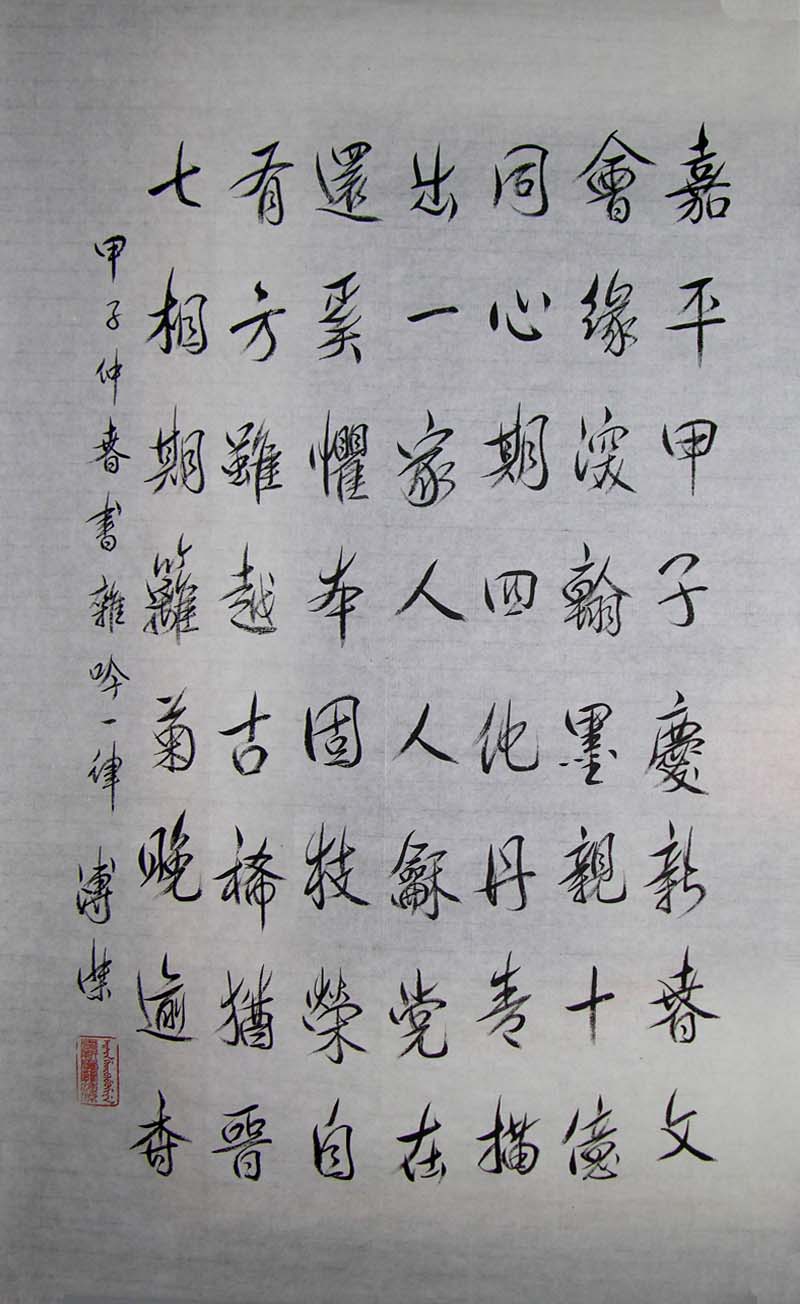 嘉平甲子慶新春文
會緣深翰墨親十億
同心期四化丹青描
出一家人人龢党在
還奚懼本固枝榮自
有方雖越古稀猶晉
七相期籬菊晚逾香
甲子仲春書雜吟一律 溥傑